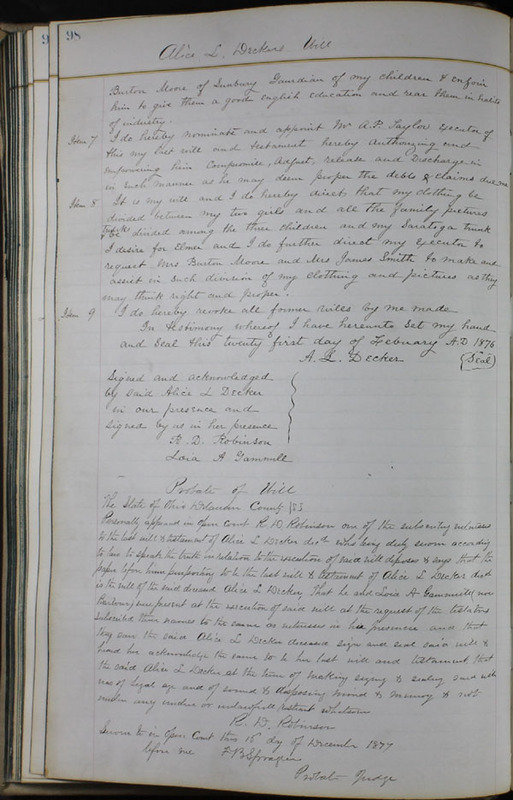 98
Alice L. Deckers Will
Burton Moore of Sunbury Guardian of my children & enjoin
him to give them a good english education and rear them in habits
of industry.
Item 7 I do hereby nominate and appoint Mr A.P. Taylor executor of
this my last will and testament hereby Authorizing and
empowering him Compromise, Adjust, release and Discharge in
in such manner as he may deem proper the debts & claims due me
Item 8 It is my will and I do hereby direct that my clothing be
divided between my two girls and all the family pictures
to be divided among the three children and my Saratoga trunk
I desire for Elmer and I do further direct my executor to
request Mrs. Burton Moore and Mrs James Smith to make and
assist in such division of my clothing and pictures as they
may think right and proper.
Item 9 I do hereby revoke all former wills by me made
In testimony whereof I have hereunto set my hand
and seal this twenty first day of February A.D 1876
A. L. Decker (Seal)
Signed and acknowledged
by said Alice L Decker
in our presence and
signed by us in her presence
R. D. Robinson
Loia A Gammill
Probate of Will
The State of Ohio Delaware County SS
Personally appeared in Open Court R. D. Robinson one of the subscribing witnesses
to the last will & testament of Alice L Decker decd who being duly sworn according
to law to speak the truth in relation to the execution of said will deposes & says that the
paper before him purporting to be the last will & testament of Alice L Decker decd
is the will of the said deceased Alice L Decker, That he and Loia A Gammill (now
Barbour) were present at the execution of said will at the request of the testatrix
subscribed their names to the same as witnesses in her presence and that
they saw the said Alice L Decker deceased sign and seal said will &
heard her acknowledge the same to be her last will and testament that
the said Alice L Decker at the time of making signing & sealing said will
was of legal age and of sound & disposing mind & memory & not
under any undue or unlawful restraint whatsoever
R. D. Robinson
Sworn to in Open Court this 15 day of December 1877
before me F B Sprague
Probate Judge